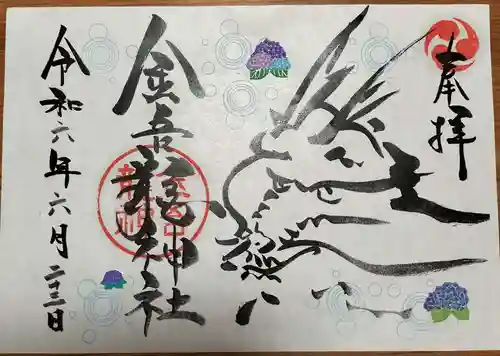 奉拝
金吾龍神社
令和六年六月二十三日